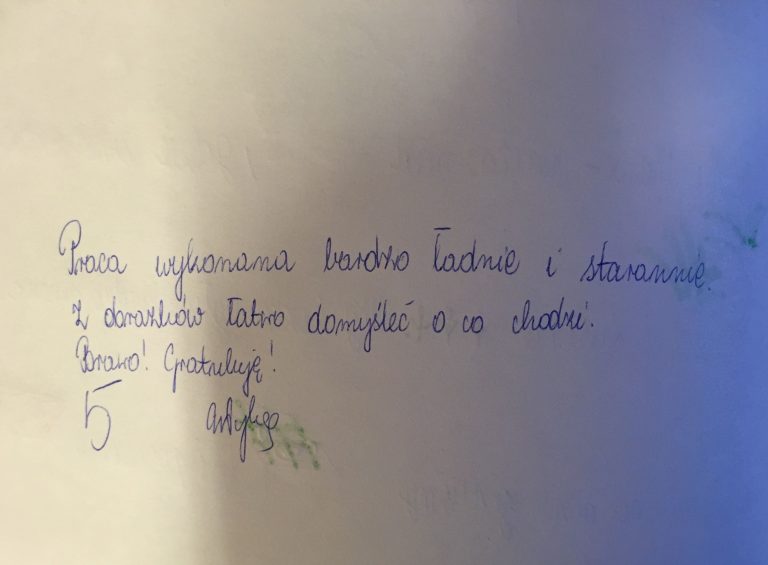 Praca wykonana bardzo ładnie i starannie.
Z obrazków łatwo domyśleć o co chodzi.
Brawo! Gratuluję!
5